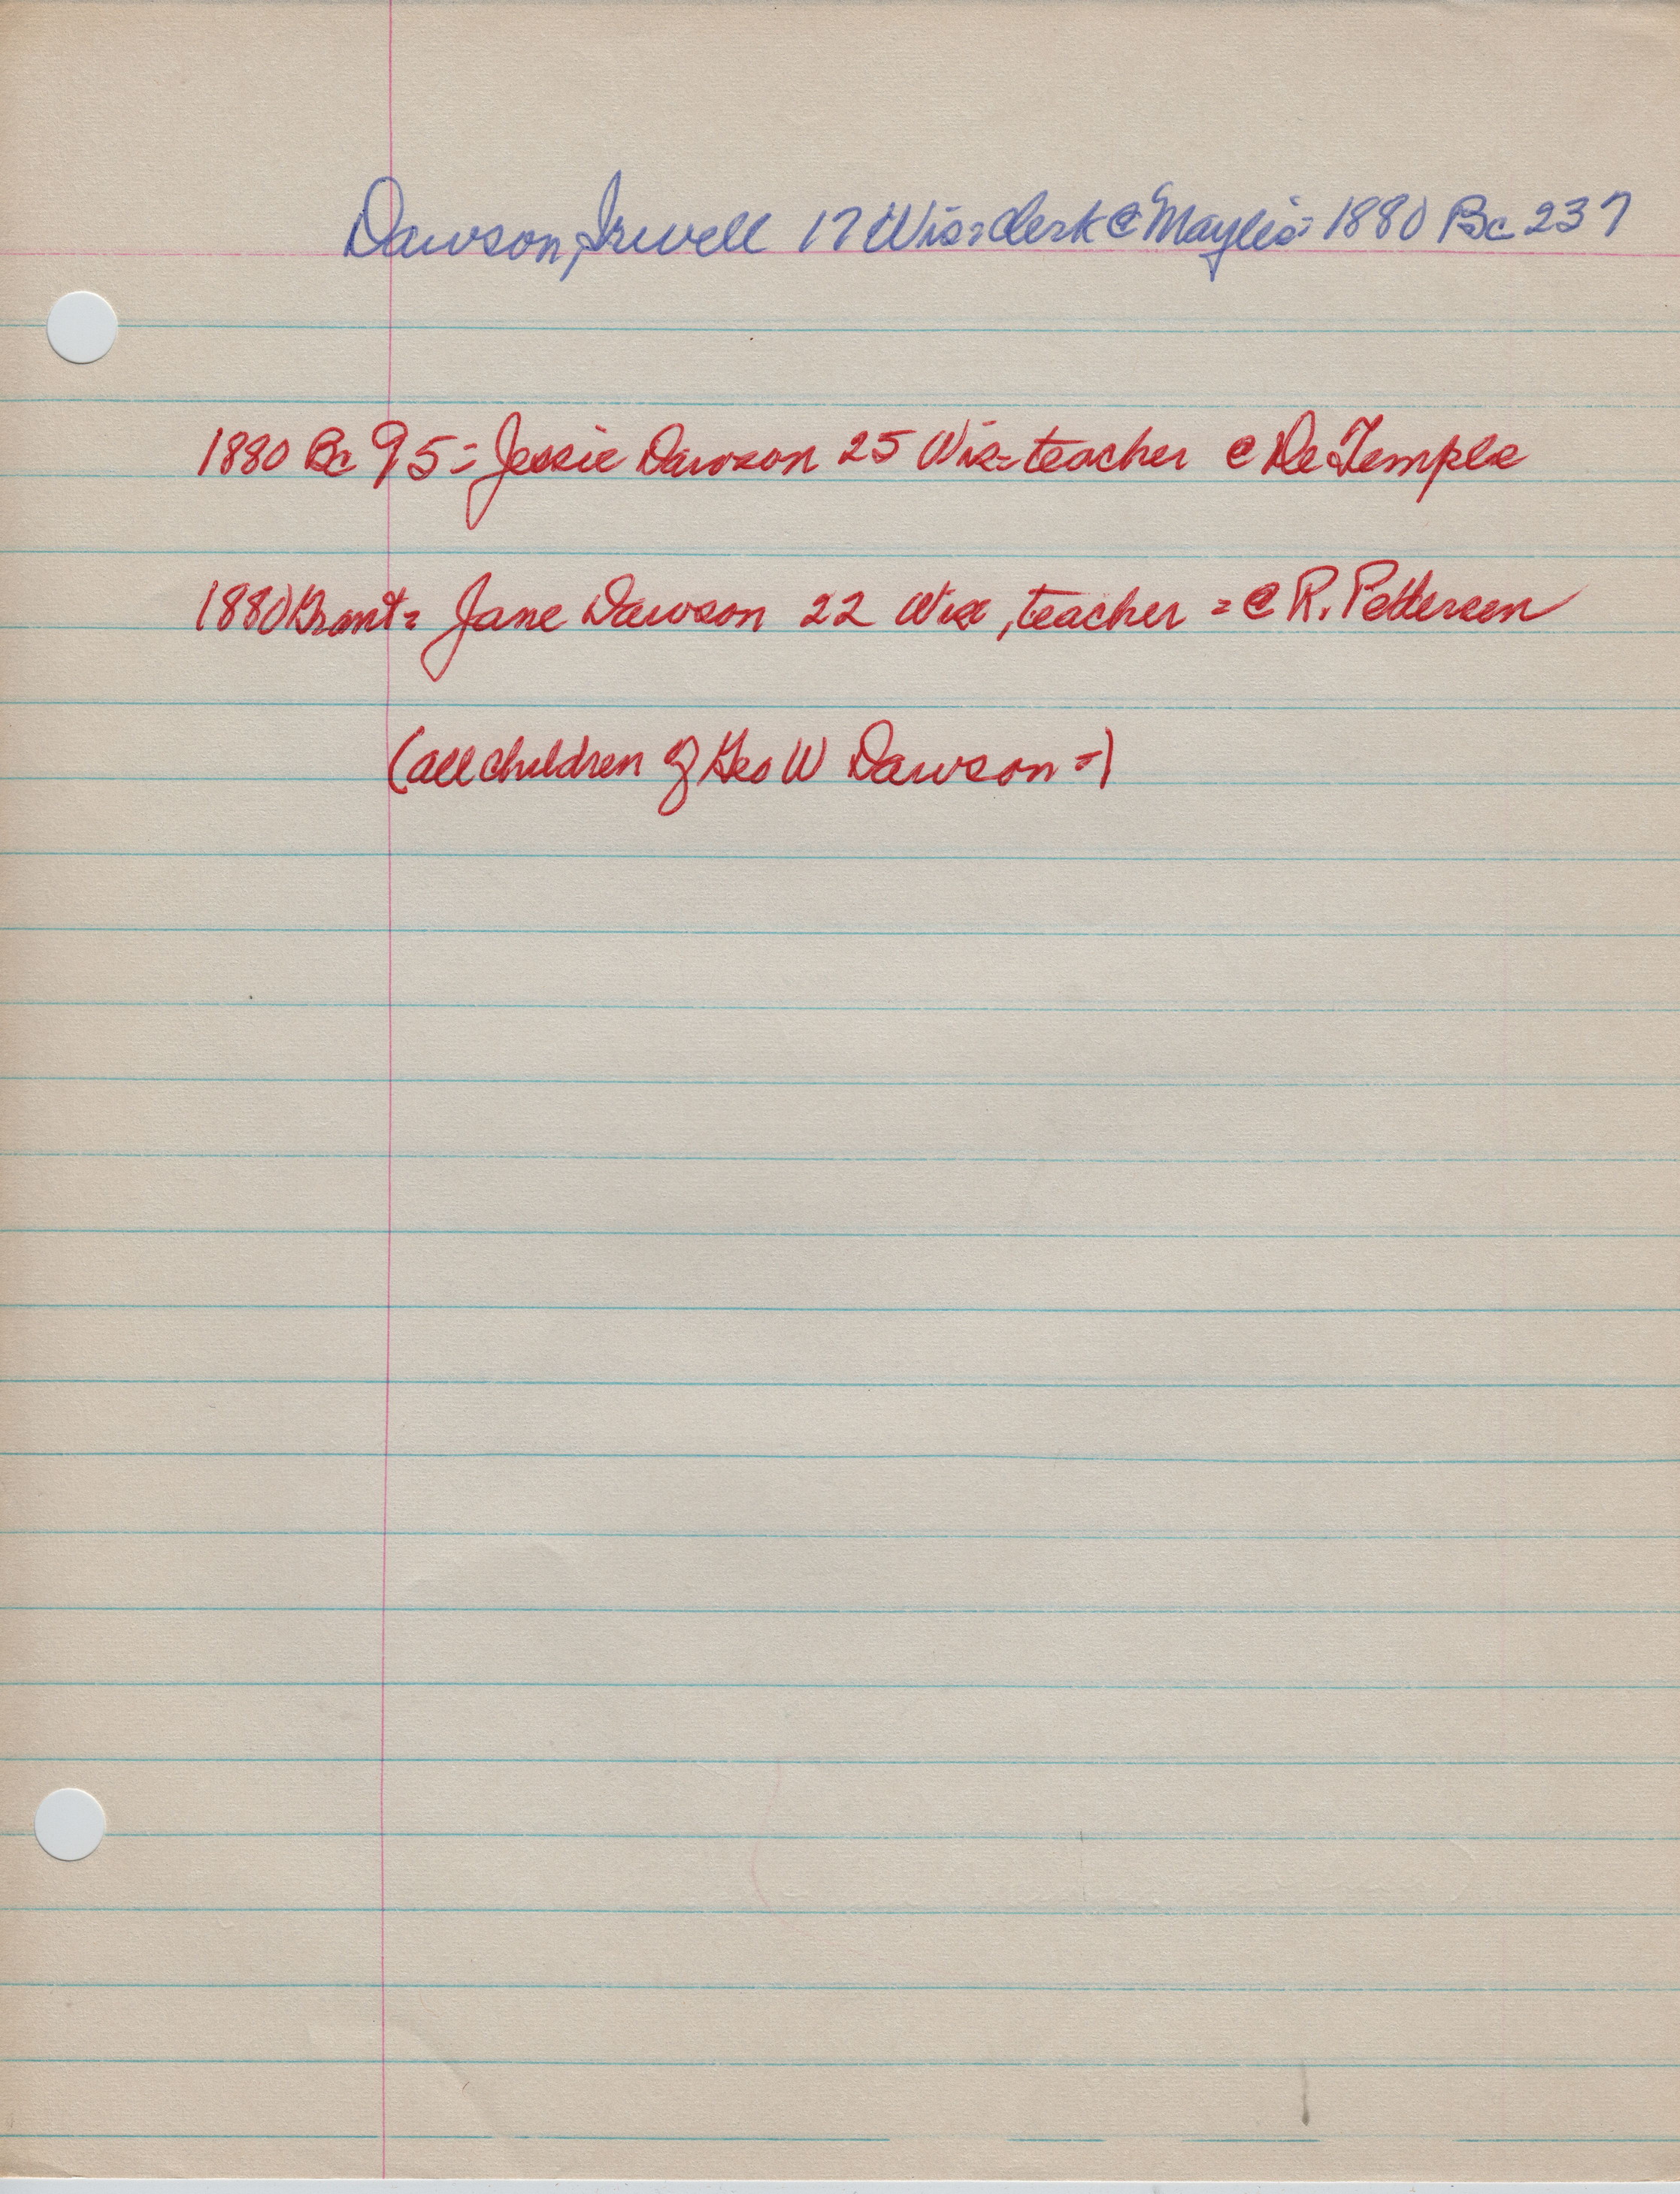 Dawson, Irwell 17 Wis = clerk @ Maylis = 1880 Bc 237
1880 Bc 95 = Jessie Dawson 25 Wis = teacher @ De Temple
1880 Grant = Jane Dawson 22 Wis, teacher = @ R. Petterson
(all children of Geo W Dawson =)